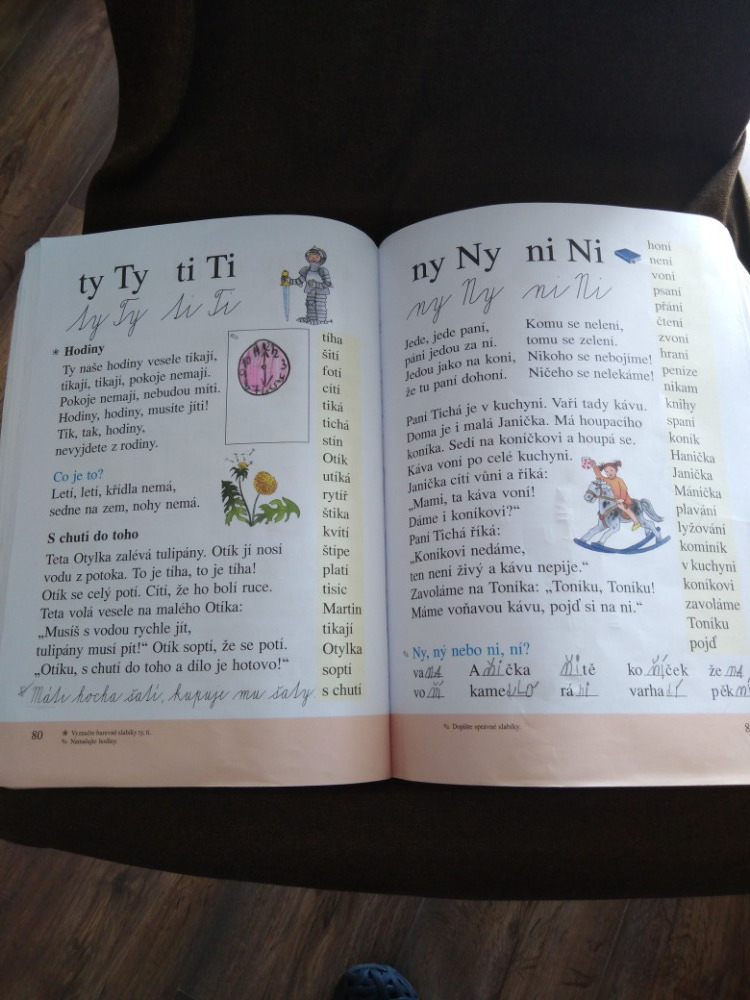 ty Ty ti Ti
ty Ty ti Ti
* Hodiny
Ty naše hodiny vesele tikají,
tikají, tikají, pokoje nemají.
Pokoje nemají, nebudou míti.
Hodiny, hodiny, musíte jíti!
Tik, tak, hodiny,
nevyjdete z rodiny.
Co je to?
Letí, letí, křídla nemá,
sedne na zem, nohy nemá.
S chutí do toho
Teta Otylka zalévá tulipány. Otík jí nosí
vodu z potoka. To je tíha, to je tíha!
Otík se celý potí. Cítí, že ho bolí ruce.
Teta volá vesele na malého Otíka:
„Musíš s vodou rychle jít,
tulipány musí pít!“ Otík soptí, že se potí.
„Otíku, s chutí do toho a dílo je hotovo!“
Máti kocha šatí, kupuje mu šaty.
tíha
šití
fotí
cítí
tiká
tichá
stín
Otík
utíká
rytíř
štika
kvítí
štípe
platí
tisíc
Martin
tikají
Otylka
soptí
s chutí
80
* Vyznačte barevně slabiky ty, ti.
Namalujte hodiny.
ny Ny ni Ni
ny Ny ni Ni
Jede, jede paní,
páni jedou za ní.
Jedou jako na koni,
že tu paní dohoní.
Komu se nelení,
tomu se zelení.
Nikoho se nebojíme!
Ničeho se nelekáme!
Paní Tichá je v kuchyni. Vaří tady kávu.
Doma je i malá Janička. Má houpacího
koníka. Sedí na koníčkovi a houpá se.
Káva voní po celé kuchyni.
Janička cítí vůni a říká:
„Mami, ta káva voní!
Dáme i koníkovi?“
Paní Tichá říká:
„Koníkovi nedáme,
ten není živý a kávu nepije.“
Zavoláme na Toníka: „Toníku, Toníku!
Máme voňavou kávu, pojď si na ni.“
honí
není
voní
psaní
přání
čtení
zvoní
hraní
peníze
nikam
knihy
spaní
koník
Hanička
Janička
Mánička
plavání
lyžování
kominík
v kuchyni
koníkovi
zavoláme
Toníku
pojď
Ny, ný nebo ni, ní?
va A čka tě ko ček že
vo kame rá varha pěk
Dopište správné slabiky.
8